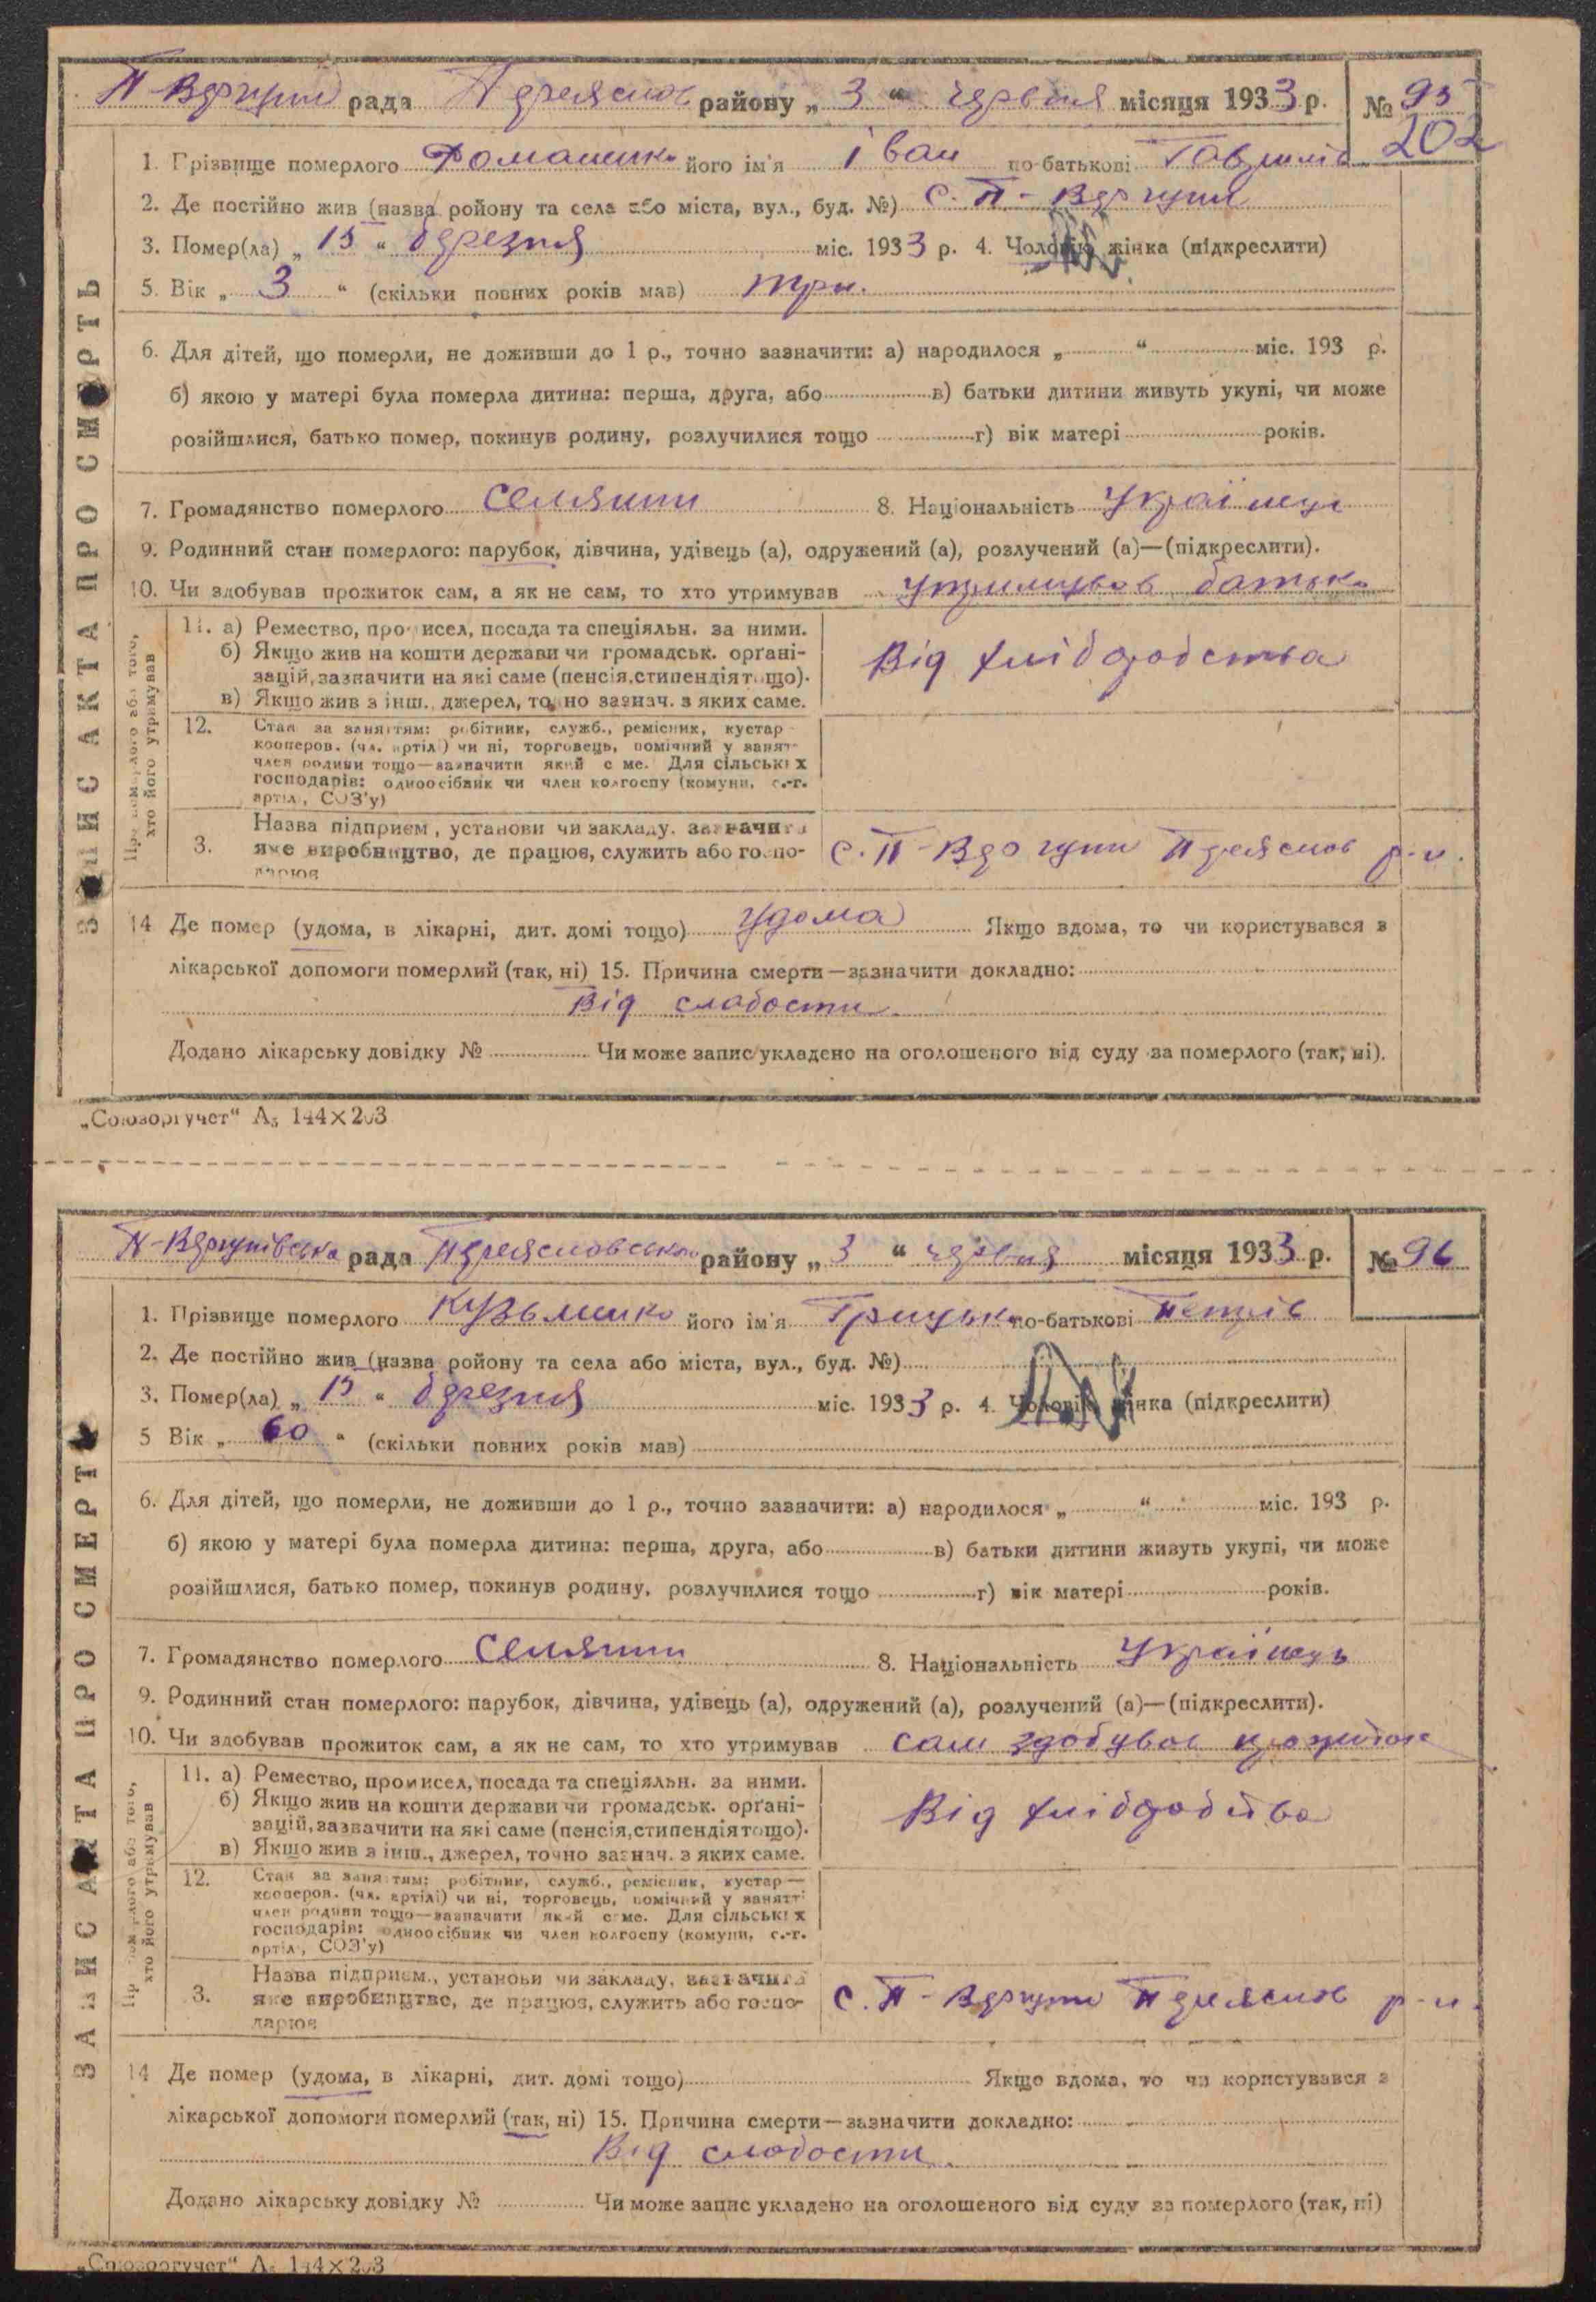 П-Вергуни рада Переяслов району „ 3 “ червня місяця 1933 р. № 95
202
1. Прізвище померлого Романенко його ім'я Іван по-батькові Гаврилів
2. Де постійно жив (назва ройону та села або міста, вул., буд. №) с. П-Вергуни
3. Помер(ла) „ 15 “ березня міс. 1933 р. 4. Чоловік, жінка (підкреслити)
5. Вік „ 3 “ (скільки повних років мав) три.
6. Для дітей, що померли, не доживши до 1 р., точно зазначити: а) народилося „ “ міс. 193 р.
б) якою у матері була померла дитина: перша, друга, або в) батьки дитини живуть укупі, чи може
розійшлися, батько помер, покинув родину, розлучилися тощо г) вік матері років.
7. Громадянство померлого селянин 8. Національність Українец
9. Родинний стан померлого: парубок, дівчина, удівець (а), одружений (а), розлучений (а)—(підкреслити).
10. Чи здобував прожиток сам, а як не сам, то хто утримував утримував батько
ЗАПИС АКТА ПРО СМЕРТЬ
Про померлого або того, хто його утримував
11. а) Ремество, промисел, посада та спеціяльн. за ними.
б) Якщо жив на кошти держави чи громадськ. орґані-
зацій, зазначити на які саме (пенсія, стипендія тощо).
в) Якщо жив з інш., джерел, точно зазнач. з яких саме.
Від хліборобства
12. Стан за заняттям: робітник, служб., ремісник, кустар
кооперов. (чл. артілі) чи ні, торговець, помічний у занятті
член родини тощо—зазначити який саме. Для сільських
господарів: одноосібник чи член колгоспу (комуни, с.-г.
артілі, СОЗ'у)
3. Назва підприєм., установи чи закладу, зазначити
яке виробництво, де працює, служить або госпо-
дарює
с. П-Вергуни Переяслов р-н.
14 Де помер (удома, в лікарні, дит. домі тощо) удома Якщо вдома, то чи користувався з
лікарської допомоги померлий (так, ні) 15. Причина смерти—зазначити докладно:
Від слабости.
Додано лікарську довідку № Чи може запис укладено на оголошеного від суду за померлого (так, ні).
„Союзоргучет“ А₅ 144×203
П-Вергунівська рада Переясловсько району „ 3 “ червня місяця 1933 р. № 96
1. Прізвище померлого Кузьменко його ім'я Грицько по-батькові Петрів
2. Де постійно жив (назва ройону та села або міста, вул., буд. №)
3. Помер(ла) „ 15 “ березня міс. 1933 р. 4. Чоловік, жінка (підкреслити)
5 Вік „ 60 “ (скільки повних років мав)
6. Для дітей, що померли, не доживши до 1 р., точно зазначити: а) народилося „ “ міс. 193 р.
б) якою у матері була померла дитина: перша, друга, або в) батьки дитини живуть укупі, чи може
розійшлися, батько помер, покинув родину, розлучилися тощо г) вік матері років.
7. Громадянство померлого Селянин 8. Національність Українець
9. Родинний стан померлого: парубок, дівчина, удівець (а), одружений (а), розлучений (а)—(підкреслити).
10. Чи здобував прожиток сам, а як не сам, то хто утримував сам здобував прожиток
ЗАПИС АКТА ПРО СМЕРТЬ
Про померлого або того, хто його утримував
11. а) Ремество, промисел, посада та спеціяльн. за ними.
б) Якщо жив на кошти держави чи громадськ. орґані-
зацій, зазначити на які саме (пенсія, стипендія тощо).
в) Якщо жив з інш., джерел, точно зазнач. з яких саме.
Від хліборобства
12. Стан за заняттям: робітник, служб., ремісник, кустар—
кооперов. (чл. артілі) чи ні, торговець, помічний у занятті
член родини тощо—зазначити який саме. Для сільських
господарів: одноосібник чи член колгоспу (комуни, с.-г.
артілі, СОЗ'у)
3. Назва підприєм., установи чи закладу, зазначити
яке виробництво, де працює, служить або госпо-
дарює
с. П-Вергуни Переяслов р-н.
14 Де помер (удома, в лікарні, дит. домі тощо) Якщо вдома, то чи користувався з
лікарської допомоги померлий (так, ні) 15. Причина смерти—зазначити докладно:
Від слабости.
Додано лікарську довідку № Чи може запис укладено на оголошеного від суду за померлого (так, ні)
„Союзоргучет“ А₅ 144×203